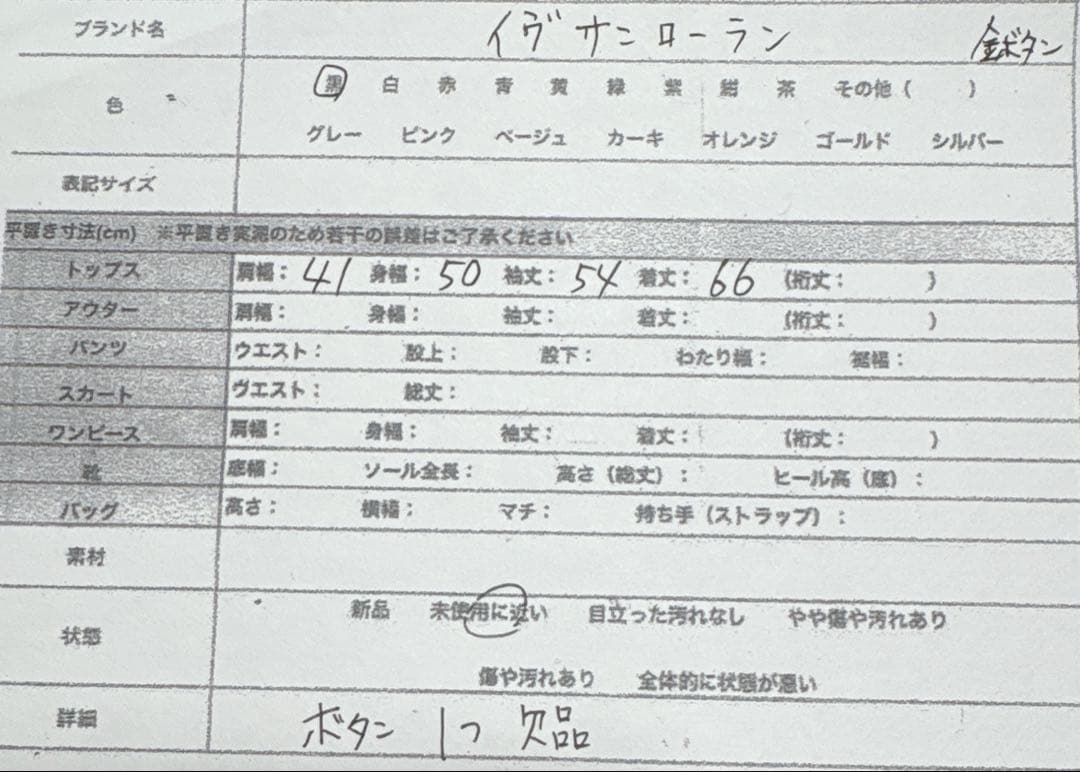 ブランド名 イヴサンローラン 金ボタン
色 黒 白 赤 青 黄 緑 紫 紺 茶 その他( )
グレー ピンク ベージュ カーキ オレンジ ゴールド シルバー
表記サイズ
平置き寸法(cm) ※平置き実測のため若干の誤差はご了承ください
トップス 肩幅: 41 身幅: 50 袖丈: 54 着丈: 66 (裄丈: )
アウター 肩幅: 身幅: 袖丈: 着丈: (裄丈: )
パンツ ウエスト: 股上: 股下: わたり幅: 裾幅:
スカート ウエスト: 総丈:
ワンピース 肩幅: 身幅: 袖丈: 着丈: (裄丈: )
靴 底幅: ソール全長: 高さ(総丈): ヒール高(底):
バッグ 高さ: 横幅: マチ: 持ち手(ストラップ):
素材
状態 新品 未使用に近い 目立った汚れなし やや傷や汚れあり
傷や汚れあり 全体的に状態が悪い
詳細 ボタン 1つ 欠品